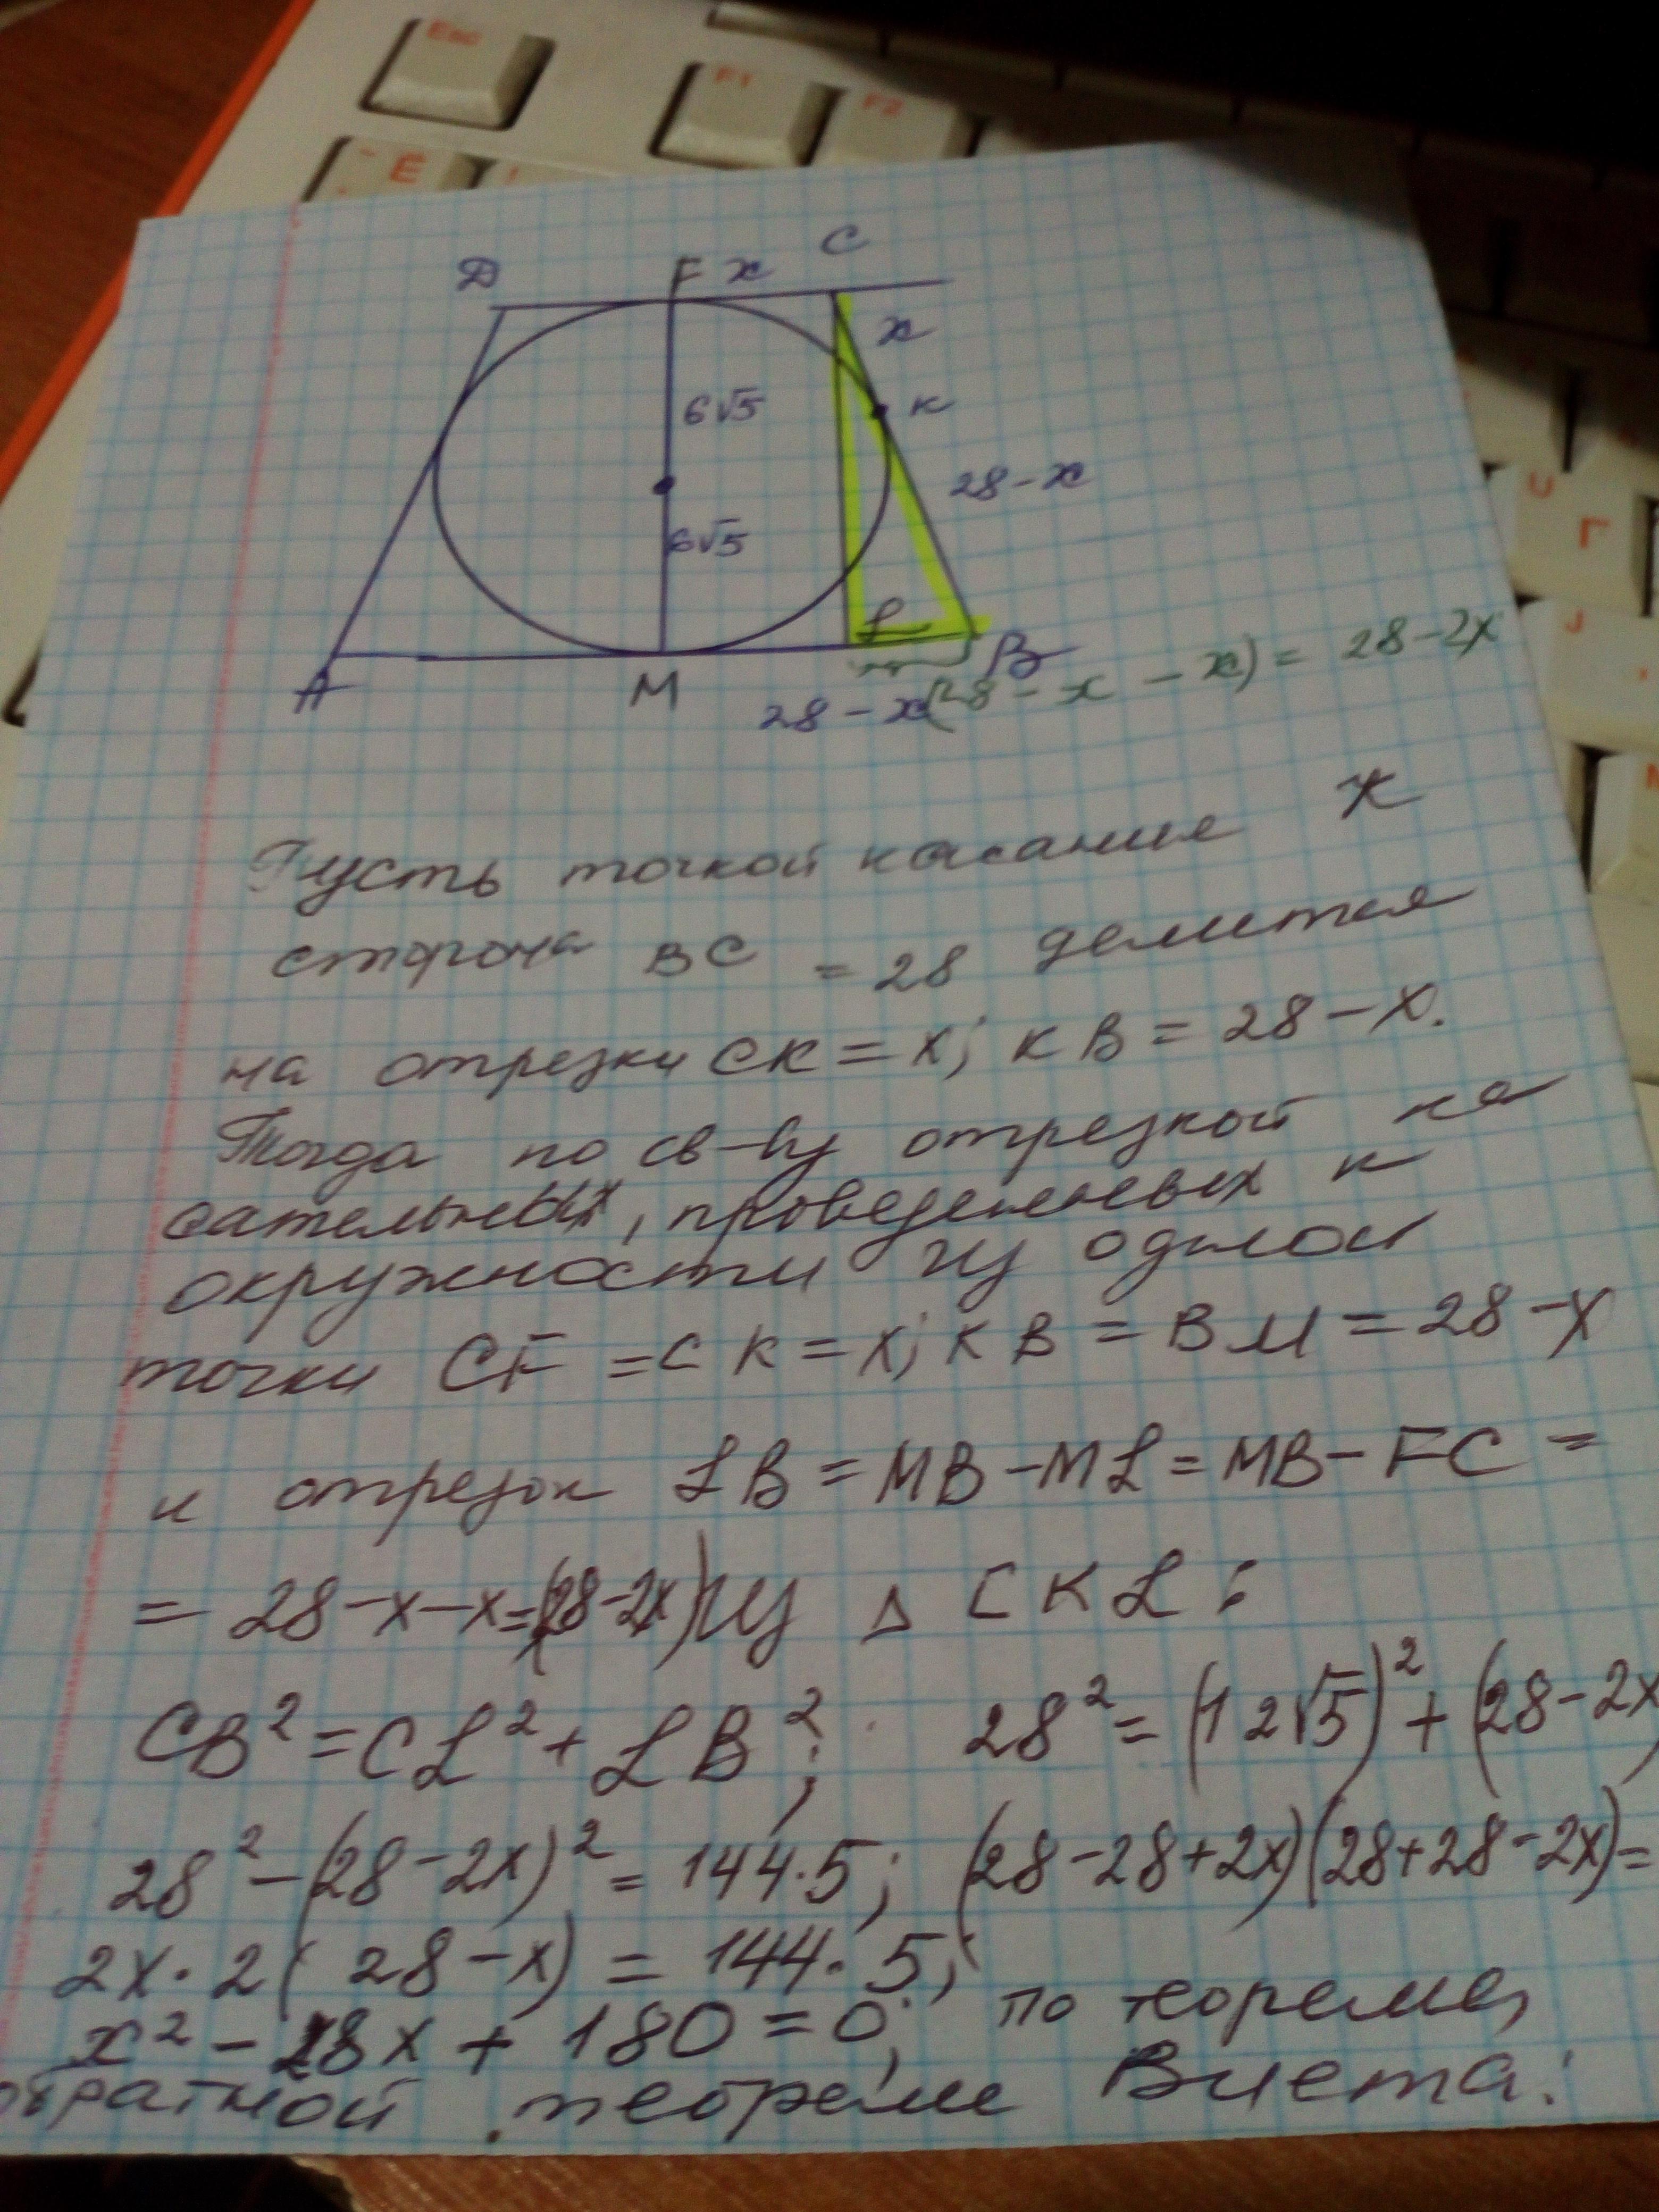 Esc
F1
F2
Ё
D F x C
x
6√5
К
28-x
6√5
L
A M B
28-x (28-x-x) = 28-2x
U
Г
J
Пусть точкой касания К
сторона BC = 28 делится
на отрезки CK = x; KB = 28-x.
Тогда по св-ву отрезкой ка
сательных, проведенных к
окружности из одной
точки CF = CK = x; KB = BM = 28-x
и отрезок LB = MB - ML = MB - FC =
= 28-x-x=(28-2x) Из Δ CKL:
CB² = CL² + LB²; 28² = (12√5)² + (28-2x
28² - (28-2x)² = 144·5; (28-28+2x)(28+28-2x)=
2x·2(28-x) = 144·5;
x² - 28x + 180 = 0; по теореме,
обратной теореме Виета: